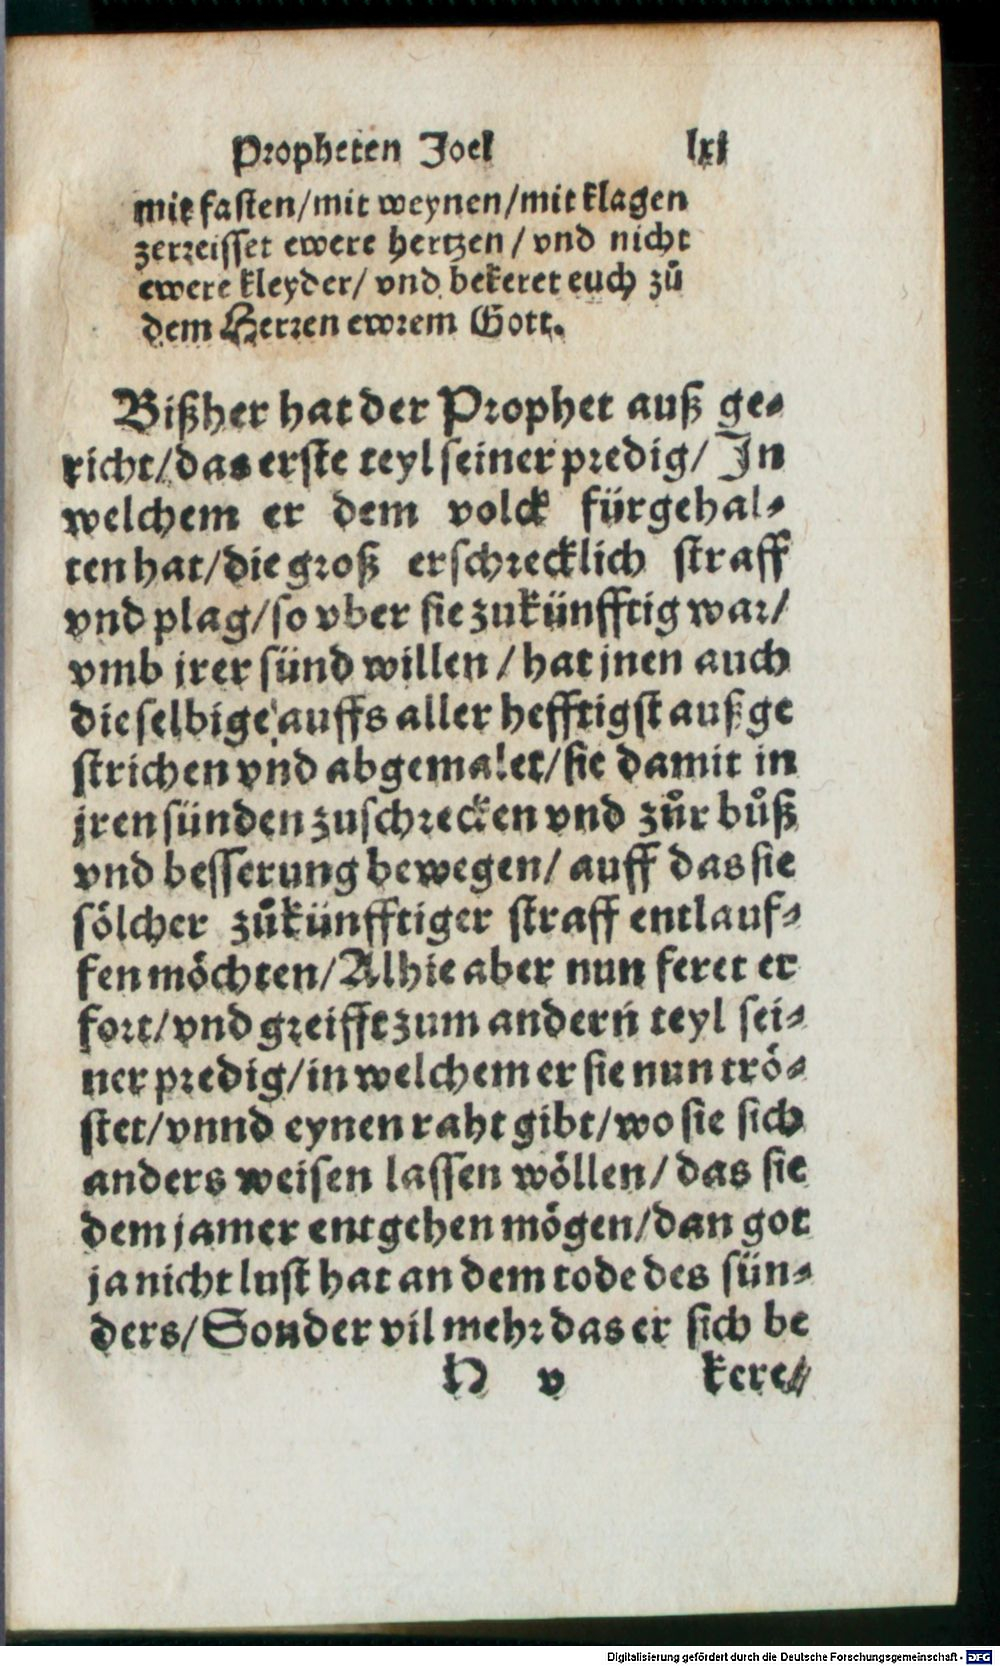 Propheten Joel lxi
mit fasten/mit weynen/mit klagen
zerreisset ewere hertzen/ vnd nicht
ewere kleyder/ vnd bekeret euch zuͦ
dem Herren ewrem Gott.
Bißher hat der Prophet auß ge⸗
richt/das erste teyl seiner predig/ In
welchem er dem volck fürgehal⸗
ten hat/die groß erschrecklich straff
vnd plag/so vber sie zukünfftig war/
vmb jrer sünd willen/hat jnen auch
dieselbige auffs aller hefftigst außge
strichen vnd abgemalet/sie damit in
jren sünden zuschrecken vnd zuͦr buͦß
vnd besserung bewegen/ auff das sie
sölcher zuͦkünfftiger straff entlauf⸗
fen möchten/Alhie aber nun feret er
fort/vnd greifft zum andern teyl sei⸗
ner predig/in welchem er sie nun trö⸗
stet/vnnd eynen raht gibt/wo sie sich
anders weisen lassen wöllen/das sie
dem jamer entgehen mögen/dan got
ja nicht lust hat an dem tode des sün⸗
ders/Sonder vil mehr das er sich be
H v kere/
Digitalisierung gefördert durch die Deutsche Forschungsgemeinschaft - DFG